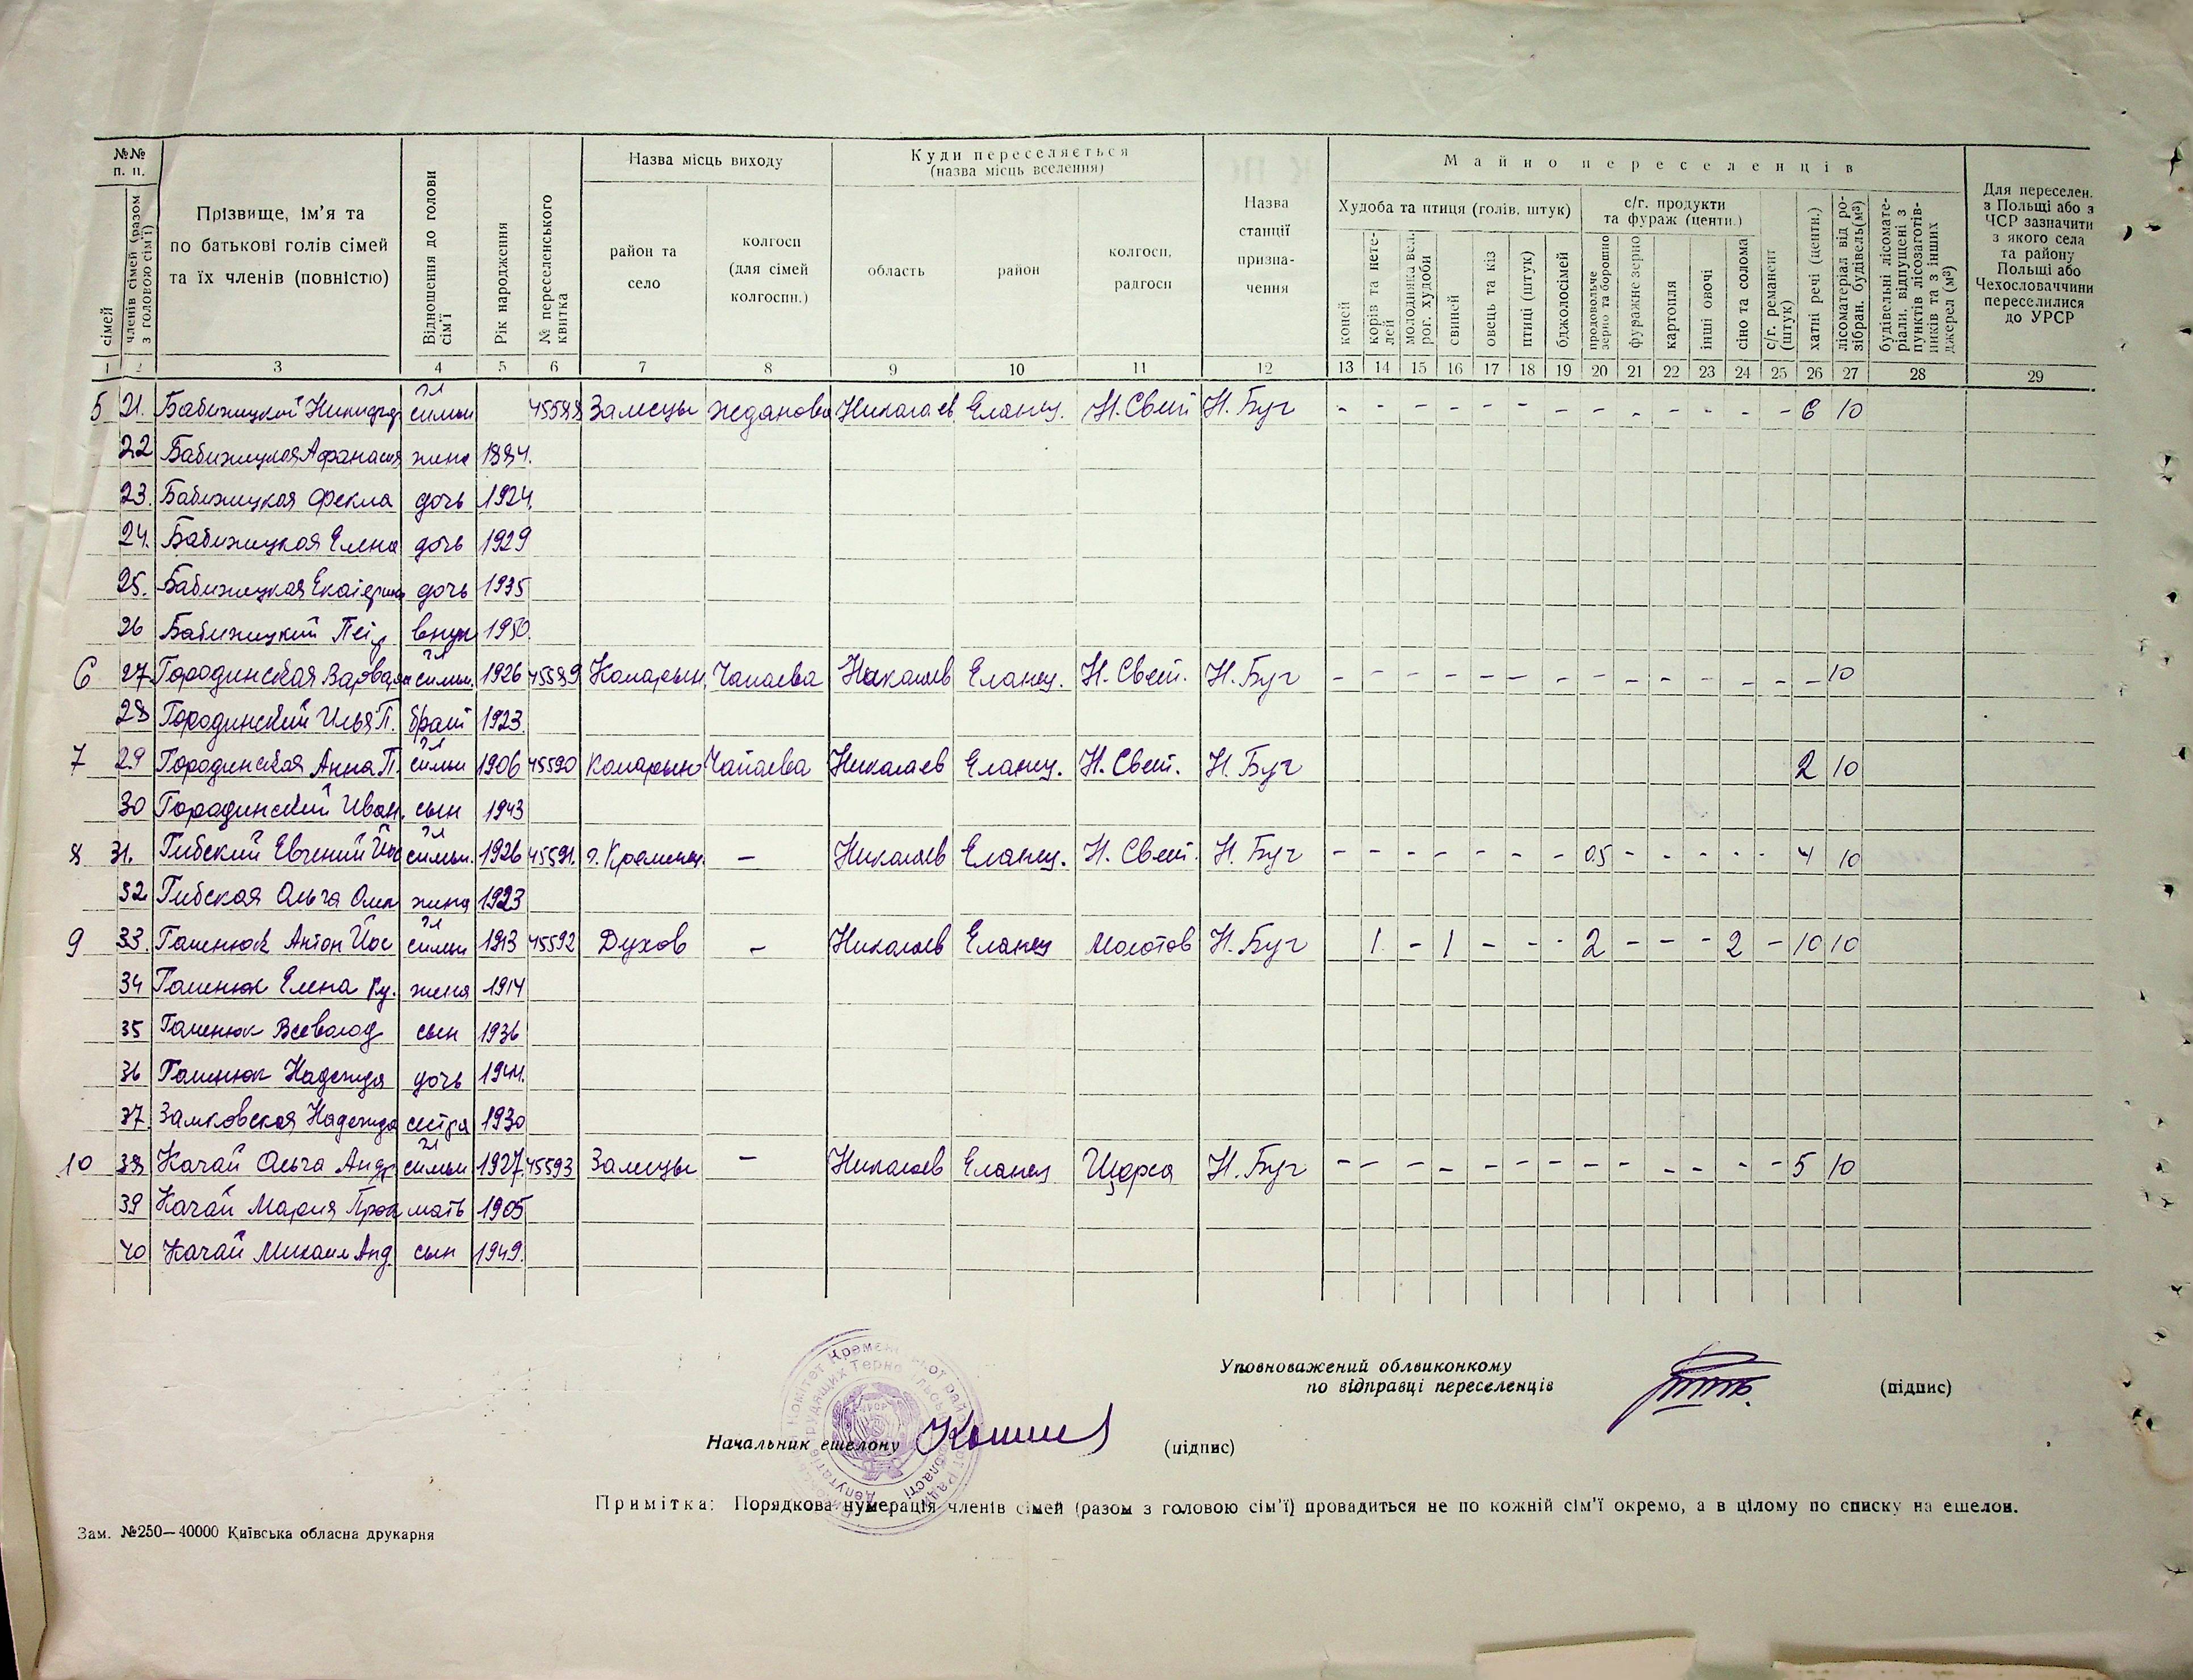 №№ п. п.
сімей
членів сімей (разом з головою сім'ї)
Прізвище, ім'я та по батькові голів сімей та їх членів (повністю)
Відношення до голови сім'ї
Рік народження
№ переселенського квитка
Назва місць виходу
район та село
колгосп (для сімей колгоспн.)
Куди переселяється (назва місць вселення)
область
район
колгосп, радгосп
Назва станції призна- чення
Майно переселенців
Худоба та птиця (голів, штук)
коней
корів та нете- лей
молодняка вел. рог. худоби
свиней
овець та кіз
птиці (штук)
бджолосімей
с/г. продукти та фураж (центн.)
продовольче зерно та борошно
фуражне зерно
картопля
інші овочі
сіно та солома
с/г. реманент (штук)
хатні речі (центн.)
лісоматеріал від ро- зібран. будівель(м³)
будівельні лісомате- ріали, відпущені з пунктів лісозаготів- ників та з інших джерел (м³)
Для переселен. з Польщі або з ЧСР зазначити з якого села та району Польщі або Чехословаччини переселилися до УРСР
1 2 3 4 5 6 7 8 9 10 11 12 13 14 15 16 17 18 19 20 21 22 23 24 25 26 27 28 29
5 21. Бабижицкий гл семьи 45588 Замецы Жданова Николаев Еланец. Н. Свет Н. Буг - - - - - - - - - - - - - 6 10
22 Бабижицкая Афанасия жена 1884.
23. Бабижицкая Фекла дочь 1924.
24. Бабижицкая Елена дочь 1929
25. Бабижицкая Екатерина дочь 1935
26 Бабижицкий Петр внук 1950.
6 27. Городинская Варвара гл семьи. 1926 45589 Комарин. Чапаева Николаев Еланец. Н. Свет. Н. Буг - - - - - - - - - - - - - - 10
28 Городинский Илья П. брат 1923.
7 29 Городинская Анна П. гл семьи 1906 45590 Комарин Чапаева Николаев Еланец. Н. Свет. Н. Буг 2 10
30 Городинский Иван. сын 1943
8 31. Гибский Евгений Йос гл семьи. 1926 45591. г. Кременец. — Николаев Еланец. Н. Свет. Н. Буг - - - - - - - 0.5 - - - - - 4 10
32 Гибская Ольга жена 1923
9 33. Гаменюк Антон Йос гл семьи 1913 45592 Духов - Николаев Еланец Молотов Н. Буг 1 - 1 - - - 2 - - - 2 - 10 10
34 Гаменюк Елена жена 1914
35 Гаменюк Всеволод сын 1936
36 Гаменюк Надежда дочь 1944.
37. Замковская Надежда сестра 1930
10 38 Качай Ольга Андр гл семьи 1927 45593 Замецы - Николаев Еланец Щорса Н. Буг - - - - - - - - - - - - - 5 10
39 Качай Мария Прок мать 1905
40 Качай Михаил Анд. сын 1949.
Уповноважений облвиконкому
по відправці переселенців (підпис)
Начальник ешелону (підпис)
Примітка: Порядкова нумерація членів сімей (разом з головою сім'ї) провадиться не по кожній сім'ї окремо, а в цілому по списку на ешелон.
Зам. №250—40000 Київська обласна друкарня